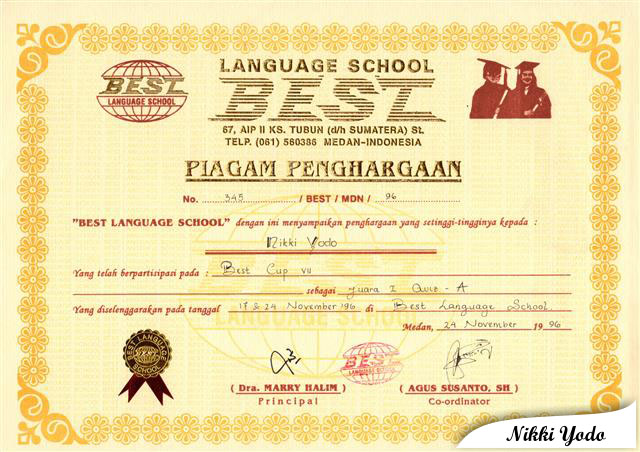 BEST
LANGUAGE SCHOOL
LANGUAGE SCHOOL
BEST
67, AIP II KS. TUBUN (d/h SUMATERA) St.
TELP. (061) 560386 MEDAN-INDONESIA
PIAGAM PENGHARGAAN
No. 345 / BEST / MDN / 96
"BEST LANGUAGE SCHOOL" dengan ini menyampaikan penghargaan yang setinggi-tingginya kepada :
Nikki Yodo
Yang telah berpartisipasi pada : Best Cup VII
sebagai Juara I Quiz - A
Yang diselenggarakan pada tanggal 17 & 24 November '96 di Best Language School.
Medan, 24 November 1996
BEST LANGUAGE
BEST
SCHOOL
BEST
LANGUAGE SCHOOL
( Dra. MARRY HALIM ) ( AGUS SUSANTO, SH )
Principal Co-ordinator
Nikki Yodo